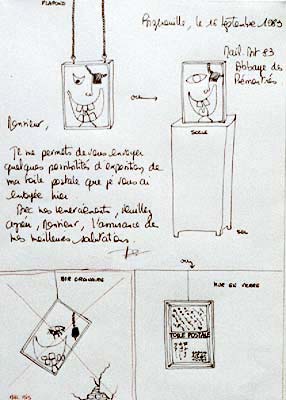 PLAFOND
le 16 Septembre 1983
Mail Art 83
Abbaye des
Prémontrés
ou
SOCLE
Monsieur,
Je me permets de vous envoyer
quelques possibilités d'exposition de
ma toile postale que je vous ai
envoyée hier
Avec mes remerciements, veuillez
agréer, Monsieur, l'assurance de
mes meilleures salutations.
SOL
ou
MUR
VUE DE
TOILE POSTALE